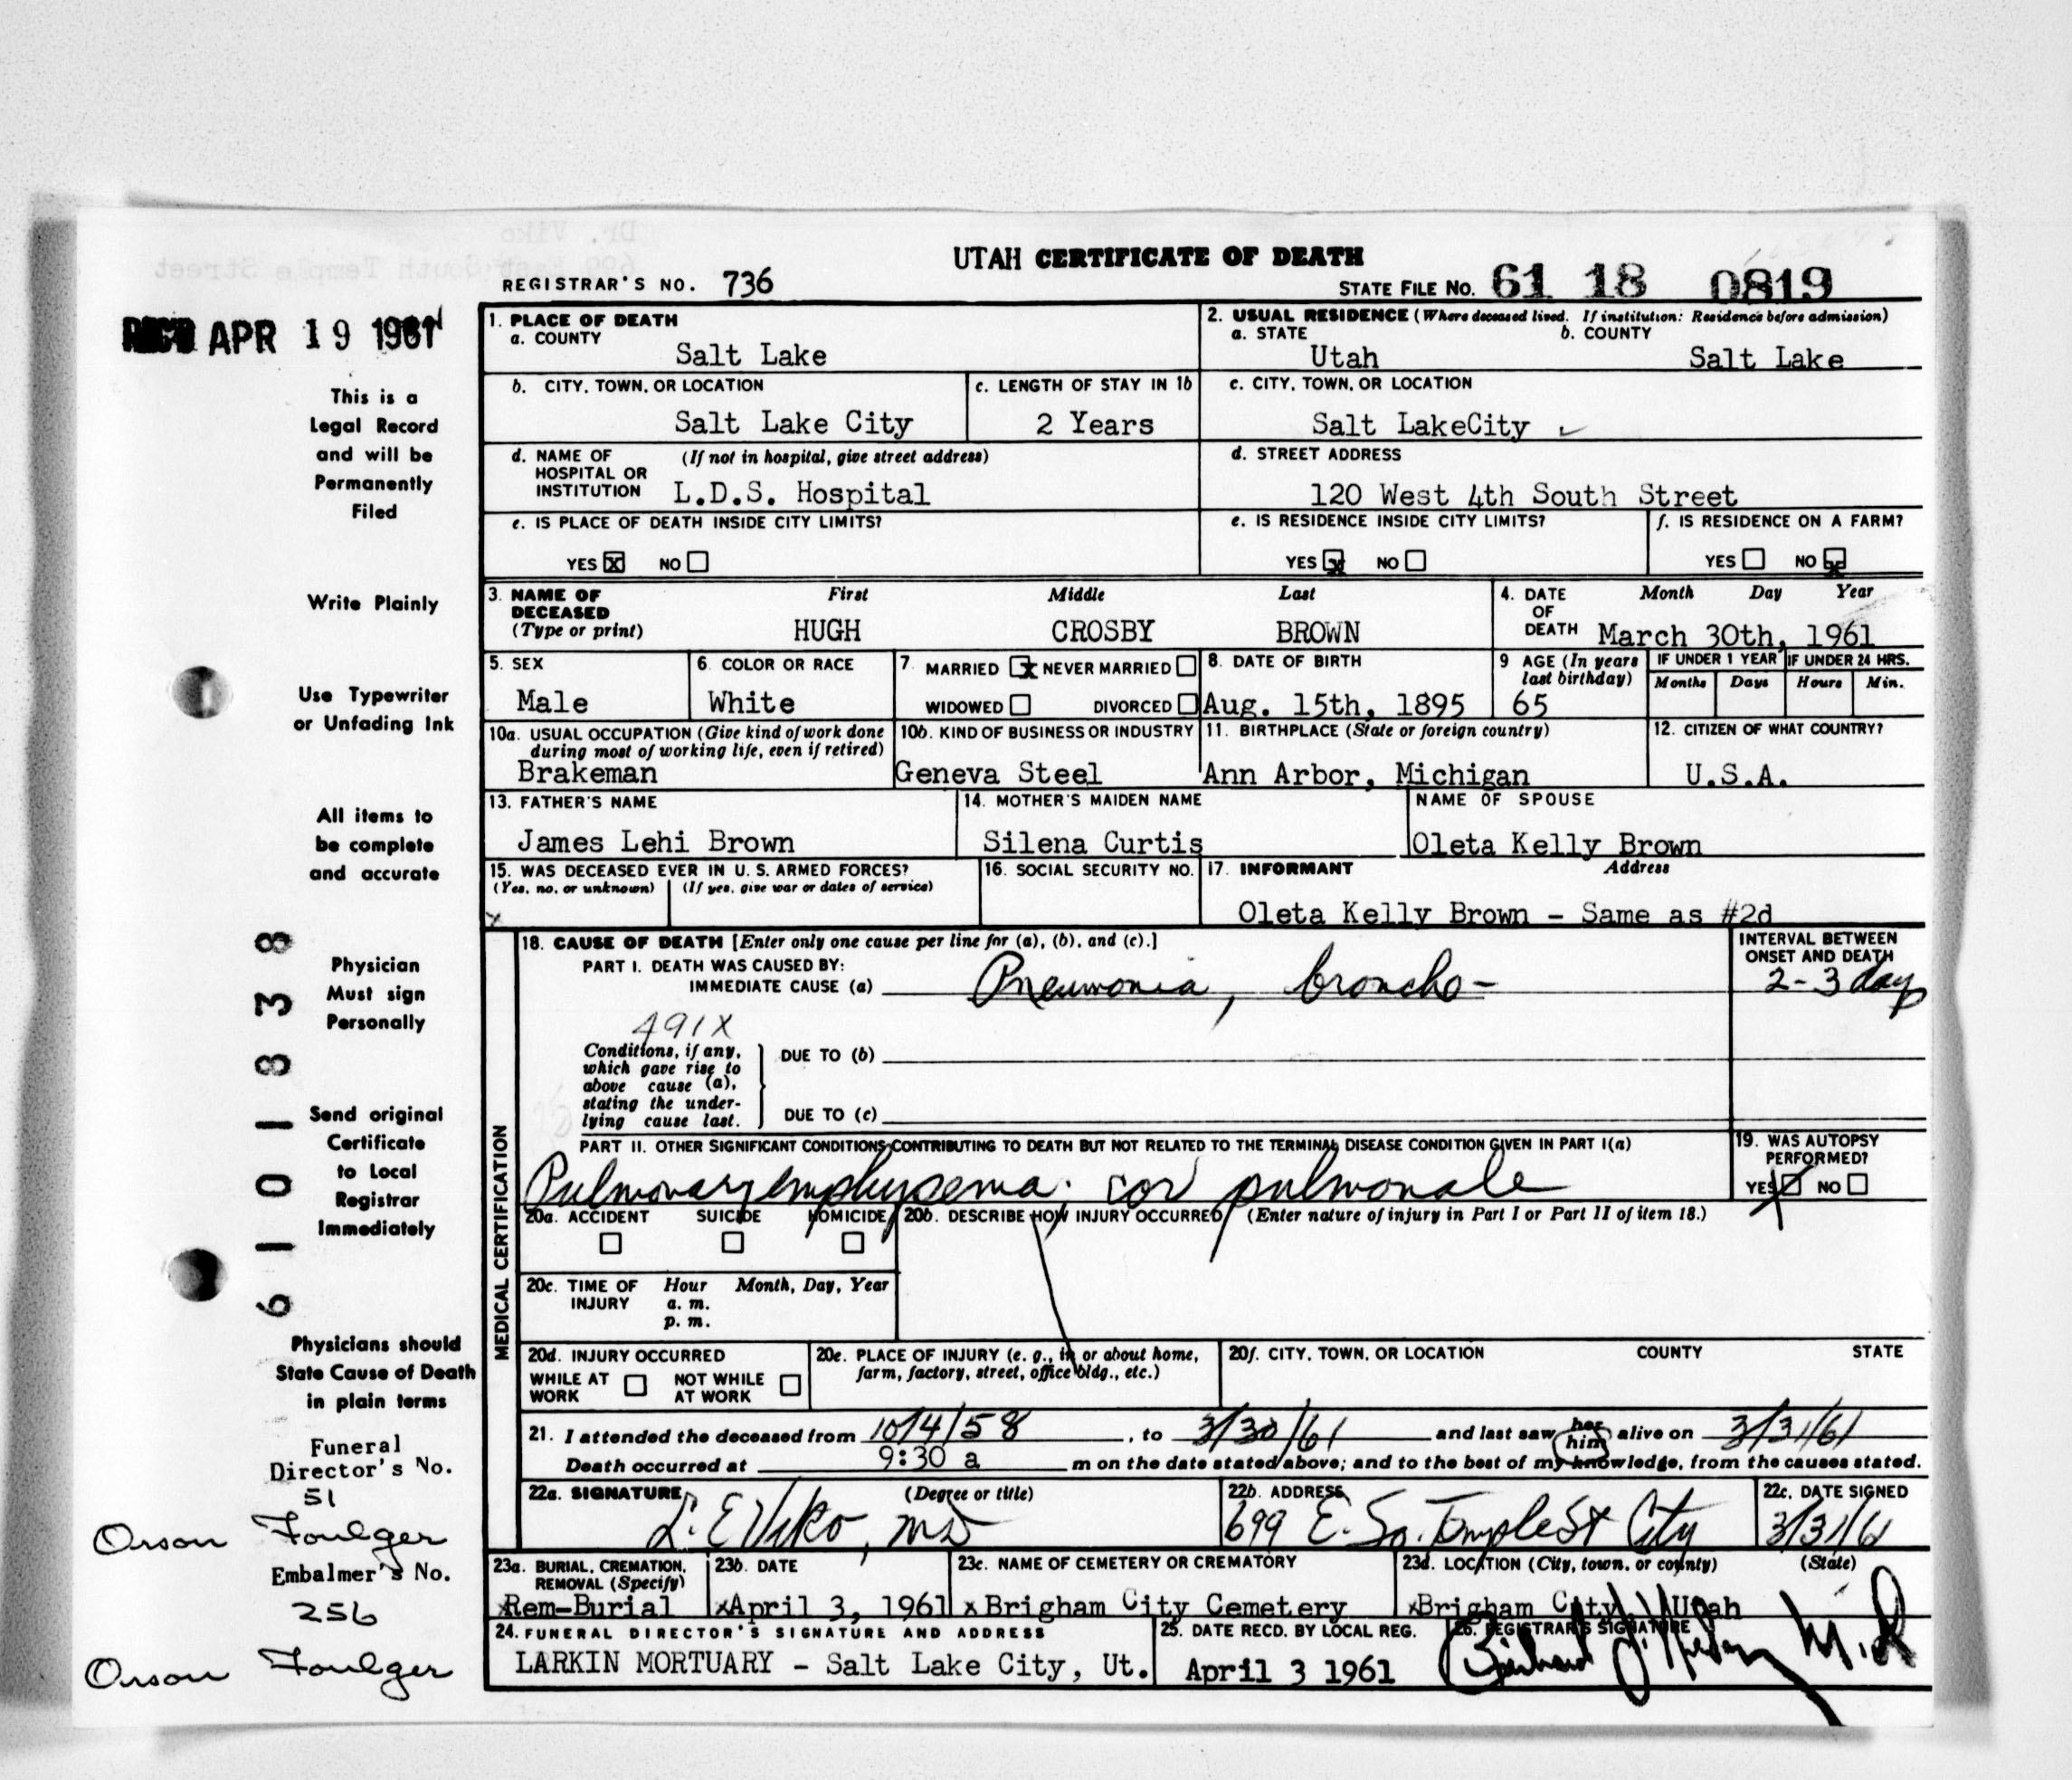 UTAH CERTIFICATE OF DEATH
REGISTRAR'S NO. 736
STATE FILE NO. 61 18 0819
REC'D APR 19 1961
This is a
Legal Record
and will be
Permanently
Filed
Write Plainly
Use Typewriter
or Unfading Ink
All items to
be complete
and accurate
Physician
Must sign
Personally
Send original
Certificate
to Local
Registrar
Immediately
Physicians should
State Cause of Death
in plain terms
Funeral
Director's No.
51
Orson Foulger
Embalmer's No.
256
Orson Foulger
6101838
1. PLACE OF DEATH
a. COUNTY
Salt Lake
2. USUAL RESIDENCE (Where deceased lived. If institution: Residence before admission)
a. STATE b. COUNTY
Utah Salt Lake
b. CITY, TOWN, OR LOCATION
Salt Lake City
c. LENGTH OF STAY IN 1b
2 Years
c. CITY, TOWN, OR LOCATION
Salt LakeCity
d. NAME OF (If not in hospital, give street address)
HOSPITAL OR
INSTITUTION L.D.S. Hospital
d. STREET ADDRESS
120 West 4th South Street
e. IS PLACE OF DEATH INSIDE CITY LIMITS?
YES X NO
e. IS RESIDENCE INSIDE CITY LIMITS?
YES X NO
f. IS RESIDENCE ON A FARM?
YES NO X
3. NAME OF First Middle Last
DECEASED
(Type or print) HUGH CROSBY BROWN
4. DATE Month Day Year
OF
DEATH March 30th, 1961
5. SEX
Male
6. COLOR OR RACE
White
7. MARRIED X NEVER MARRIED
WIDOWED DIVORCED
8. DATE OF BIRTH
Aug. 15th, 1895
9 AGE (In years
last birthday)
65
IF UNDER 1 YEAR IF UNDER 24 HRS.
Months Days Hours Min.
10a. USUAL OCCUPATION (Give kind of work done
during most of working life, even if retired)
Brakeman
10b. KIND OF BUSINESS OR INDUSTRY
Geneva Steel
11. BIRTHPLACE (State or foreign country)
Ann Arbor, Michigan
12. CITIZEN OF WHAT COUNTRY?
U.S.A.
13. FATHER'S NAME
James Lehi Brown
14. MOTHER'S MAIDEN NAME
Silena Curtis
NAME OF SPOUSE
Oleta Kelly Brown
15. WAS DECEASED EVER IN U. S. ARMED FORCES?
(Yes, no, or unknown) (If yes, give war or dates of service)
16. SOCIAL SECURITY NO.
17. INFORMANT Address
Oleta Kelly Brown - Same as #2d
MEDICAL CERTIFICATION
18. CAUSE OF DEATH [Enter only one cause per line for (a), (b), and (c).]
PART I. DEATH WAS CAUSED BY:
IMMEDIATE CAUSE (a) Pneumonia, broncho-
INTERVAL BETWEEN
ONSET AND DEATH
2-3 days
491X
Conditions, if any,
which gave rise to
above cause (a),
stating the under-
lying cause last.
DUE TO (b)
DUE TO (c)
PART II. OTHER SIGNIFICANT CONDITIONS CONTRIBUTING TO DEATH BUT NOT RELATED TO THE TERMINAL DISEASE CONDITION GIVEN IN PART I(a)
Pulmonary emphysema; cor pulmonale
19. WAS AUTOPSY
PERFORMED?
YES X NO
20a. ACCIDENT SUICIDE HOMICIDE
20b. DESCRIBE HOW INJURY OCCURRED (Enter nature of injury in Part I or Part II of item 18.)
20c. TIME OF Hour Month, Day, Year
INJURY a. m.
p. m.
20d. INJURY OCCURRED
WHILE AT WORK NOT WHILE AT WORK
20e. PLACE OF INJURY (e. g., in or about home,
farm, factory, street, office bldg., etc.)
20f. CITY, TOWN, OR LOCATION COUNTY STATE
21. I attended the deceased from 10/4/58, to 3/30/61 and last saw her him alive on 3/31/61
Death occurred at 9:30 a m on the date stated above; and to the best of my knowledge, from the causes stated.
22a. SIGNATURE (Degree or title)
L. E Viko, MD
22b. ADDRESS
699 E. So. Temple St City
22c. DATE SIGNED
3/31/61
23a. BURIAL, CREMATION,
REMOVAL (Specify)
Rem-Burial
23b. DATE
April 3, 1961
23c. NAME OF CEMETERY OR CREMATORY
Brigham City Cemetery
23d. LOCATION (City, town, or county) (State)
Brigham City, Utah
24. FUNERAL DIRECTOR'S SIGNATURE AND ADDRESS
LARKIN MORTUARY - Salt Lake City, Ut.
25. DATE RECD. BY LOCAL REG.
April 3 1961
26. REGISTRAR'S SIGNATURE
M.D.